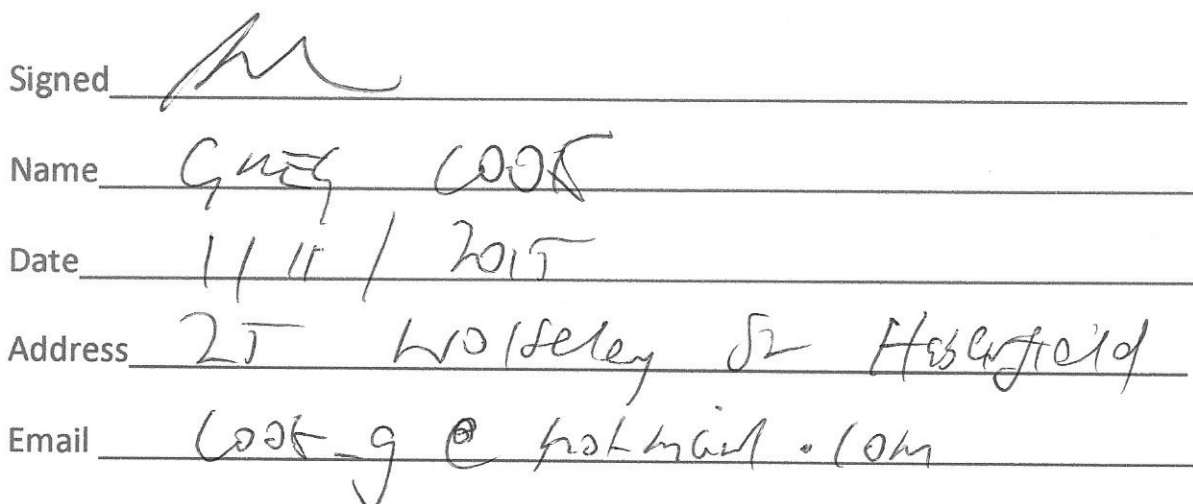 Signed
Name GREG COOK
Date 11/11/2015
Address 25 Wolseley St Haberfield
Email cook_g@hotmail.com